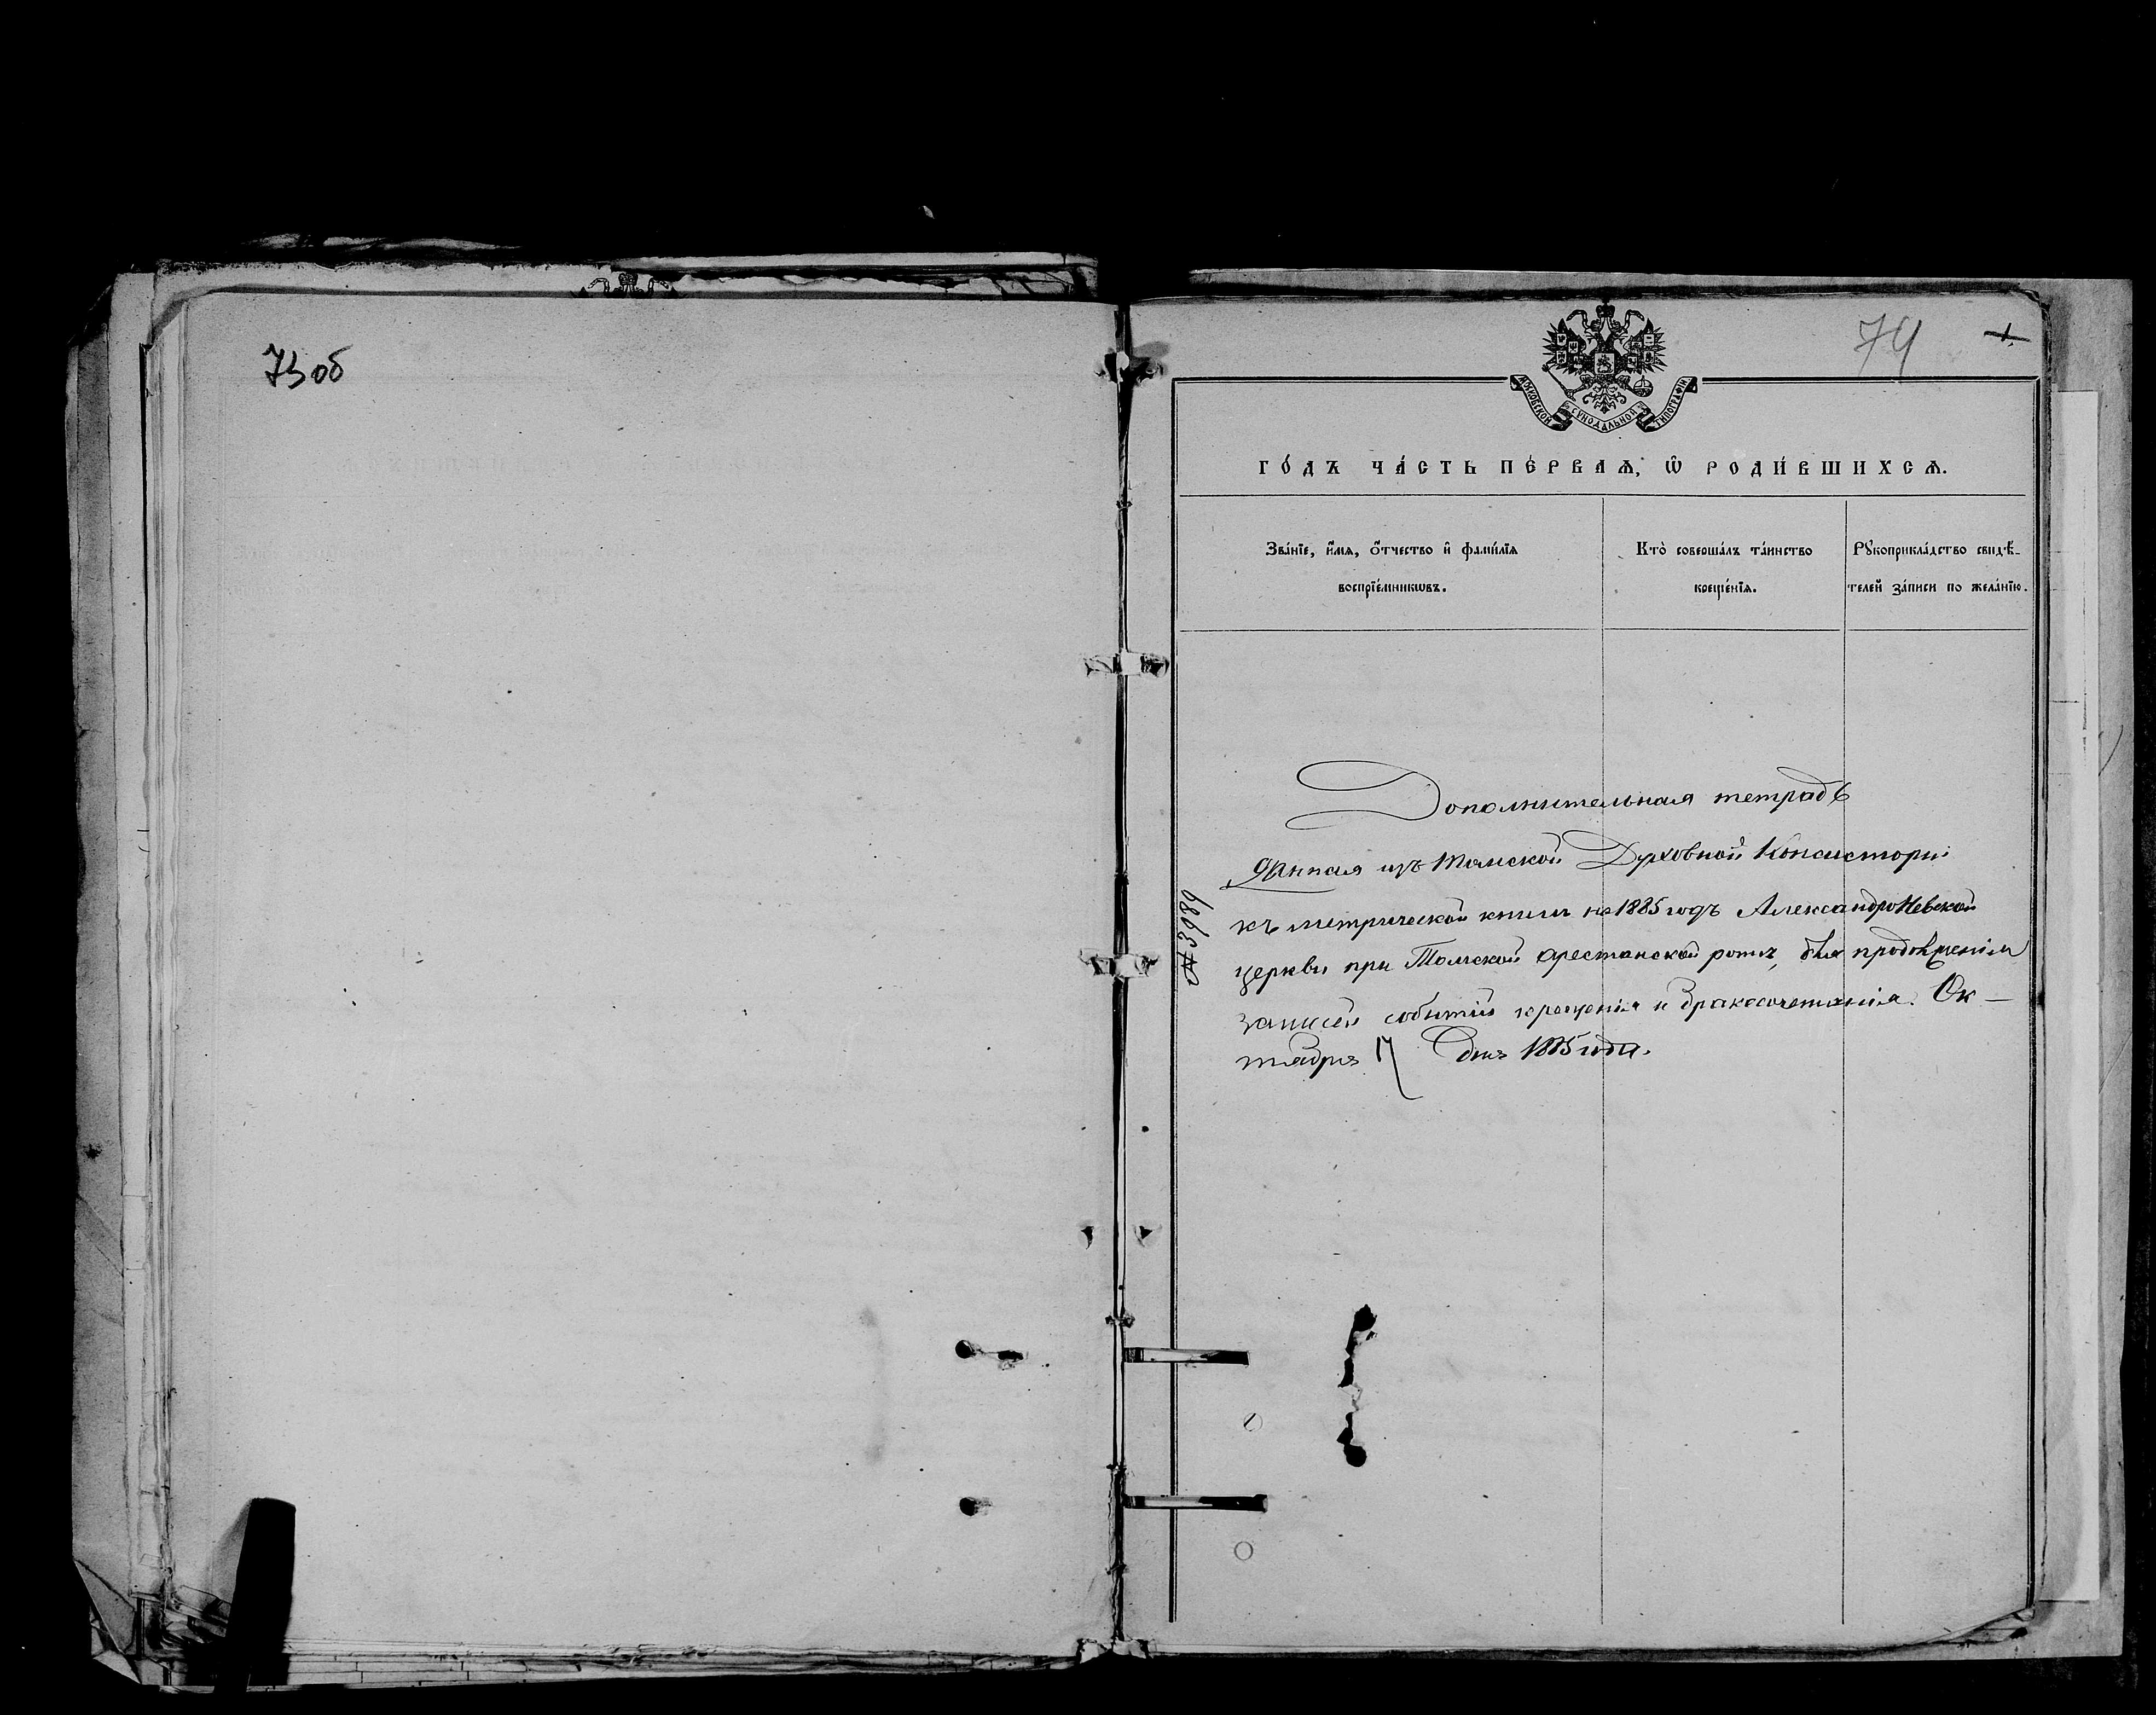 73 об
74
1.
МОСКОВСКОЙ СѴНОДАЛЬНОЙ ТИПОГРАФІИ
ГО́ДЪ ЧА́СТЬ ПЕ́РВАѦ, Ѡ҆ РОДИ́ВШИХСѦ.
Зва́нїе, и҆́мѧ, ѻ҆́тчество и҆ фами́лїѧ
воспрїе́мникѡвъ.
Кто̀ соверша́лъ та́инство
креще́нїѧ.
Рꙋкоприкла́дство свидѣ́-
телей за́писи по жела́нїю.
Дополнительная тетрадь
данная изъ Томской Духовной Консисторіи
къ метрической книгѣ на 1885 годъ АлександроНевской
церкви при Томской арестанской ротѣ, для продолженія
записей событій крещенія и бракосочетанія. Ок-
тября 17 дня 1885 года.
№ 3989